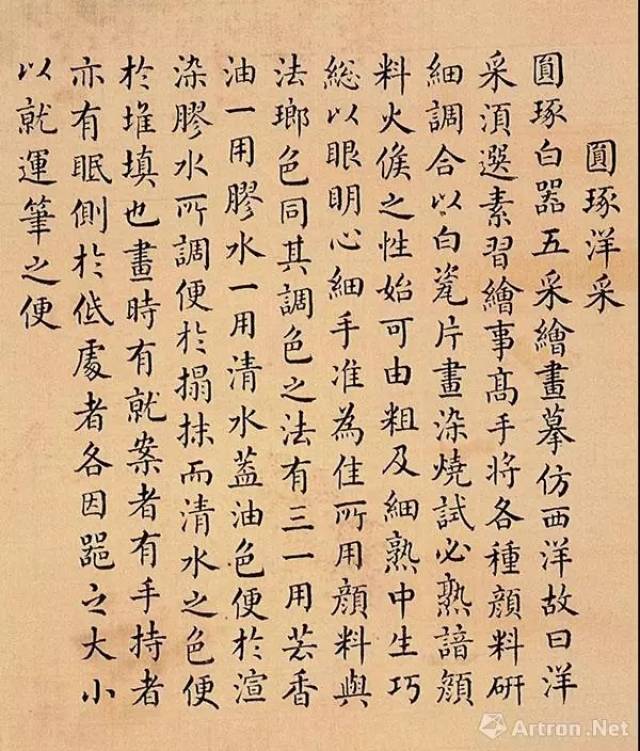 圓琢洋采
圓琢白器五采繪畫摹仿西洋故曰洋
采須選素習繪事髙手將各種顏料研
細調合以白瓷片畫染燒試必熟諳顏
料火候之性始可由粗及細熟中生巧
総以眼明心細手准為佳所用顏料與
法瑯色同其調色之法有三一用芸香
油一用膠水一用清水葢油色便於渲
染膠水所調便於搨抹而清水之色便
於堆填也畫時有就案者有手持者
亦有眠側於低處者各因器之大小
以就運筆之便
Artron.Net